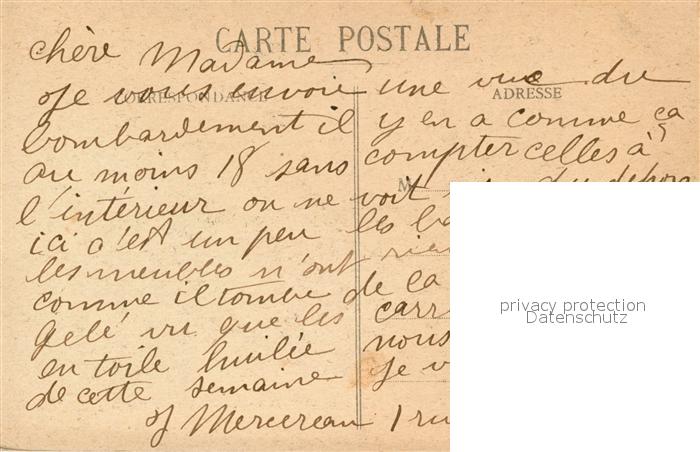 CARTE POSTALE
CORRESPONDANCE
ADRESSE
chère Madame
Je vous envoie une vue du
bombardement il y en a comme ça
au moins 18 sans compter celles à
l'intérieur on ne voit du dehors
ici c'est un peu les
les meubles n'ont rien
comme il tombe de la
Gelé vu que les carr
en toile huilée nous
de cette semaine Je v
J Mercereau 1 ru
M
privacy protection
Datenschutz